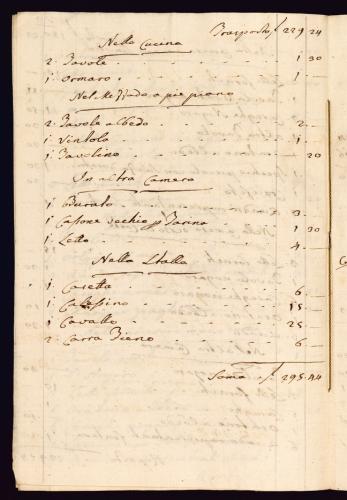 Trasporto f 229 24
Nella Cucina
2: Tavole 1 30
1: Ormaro 1
Nel a pie piano
2: Tavole albedo 2
1: Ventola 1
1: Tavolino 20
In altra Camera
1: Burato 3
1: Casone vechio p Farina 1 30
1: Letto 4
Nella Stalla
1: Casetta 6
1: Calessino 15
1: Cavallo 25
2: Carra Fieno 6
Soma f 295.44